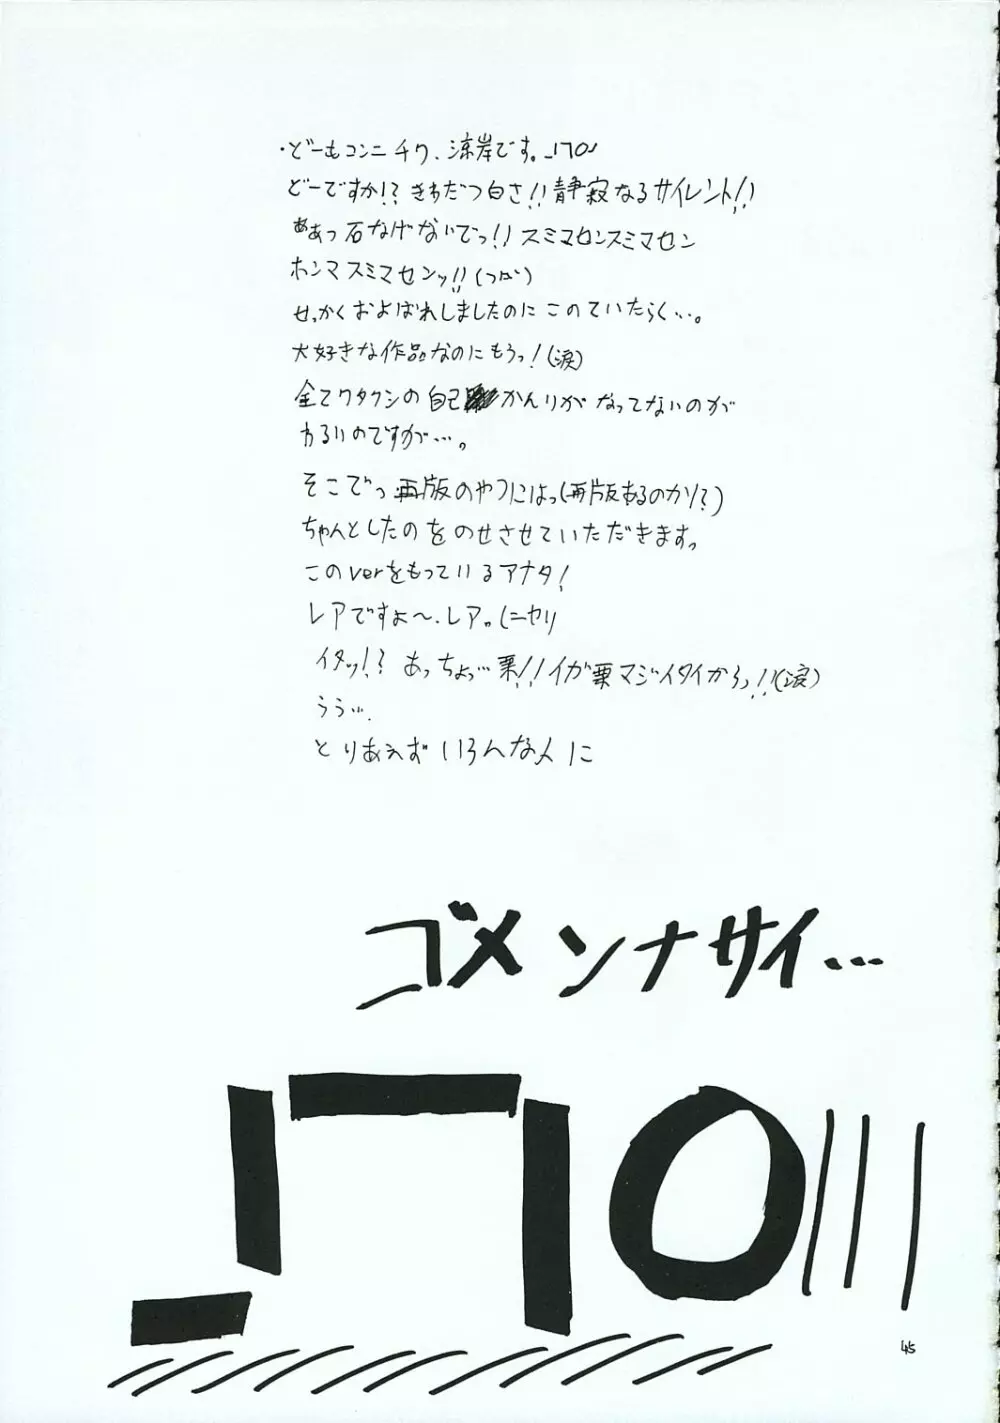 ・どーもコンニチワ、涼岸です。_| ̄|○
どーですか!? きわだつ白さ!! 静寂なるサイレント!!
ああっ石なげないでっ!! スミマセンスミマセン
ホンマスミマセンッ!!(つД`)
せっかくおよばれしましたのにこのていたらく…。
大好きな作品なのにもうっ!(涙)
全てワタクシの自己かんりがなってないのが
わるいのですが…。
そこでっ再版のやつにはっ(再版あるのか!?)
ちゃんとしたのをのせさせていただきますっ
このverをもっているアナタ!
レアですよ〜、レア。(ニヤリ
イタッ!? あっちょっ…栗!! イガ栗マジイタイからっ!!(涙)
ううぅ…
とりあえずいろんな人に
ゴメンナサイ…
_| ̄|○|||
45